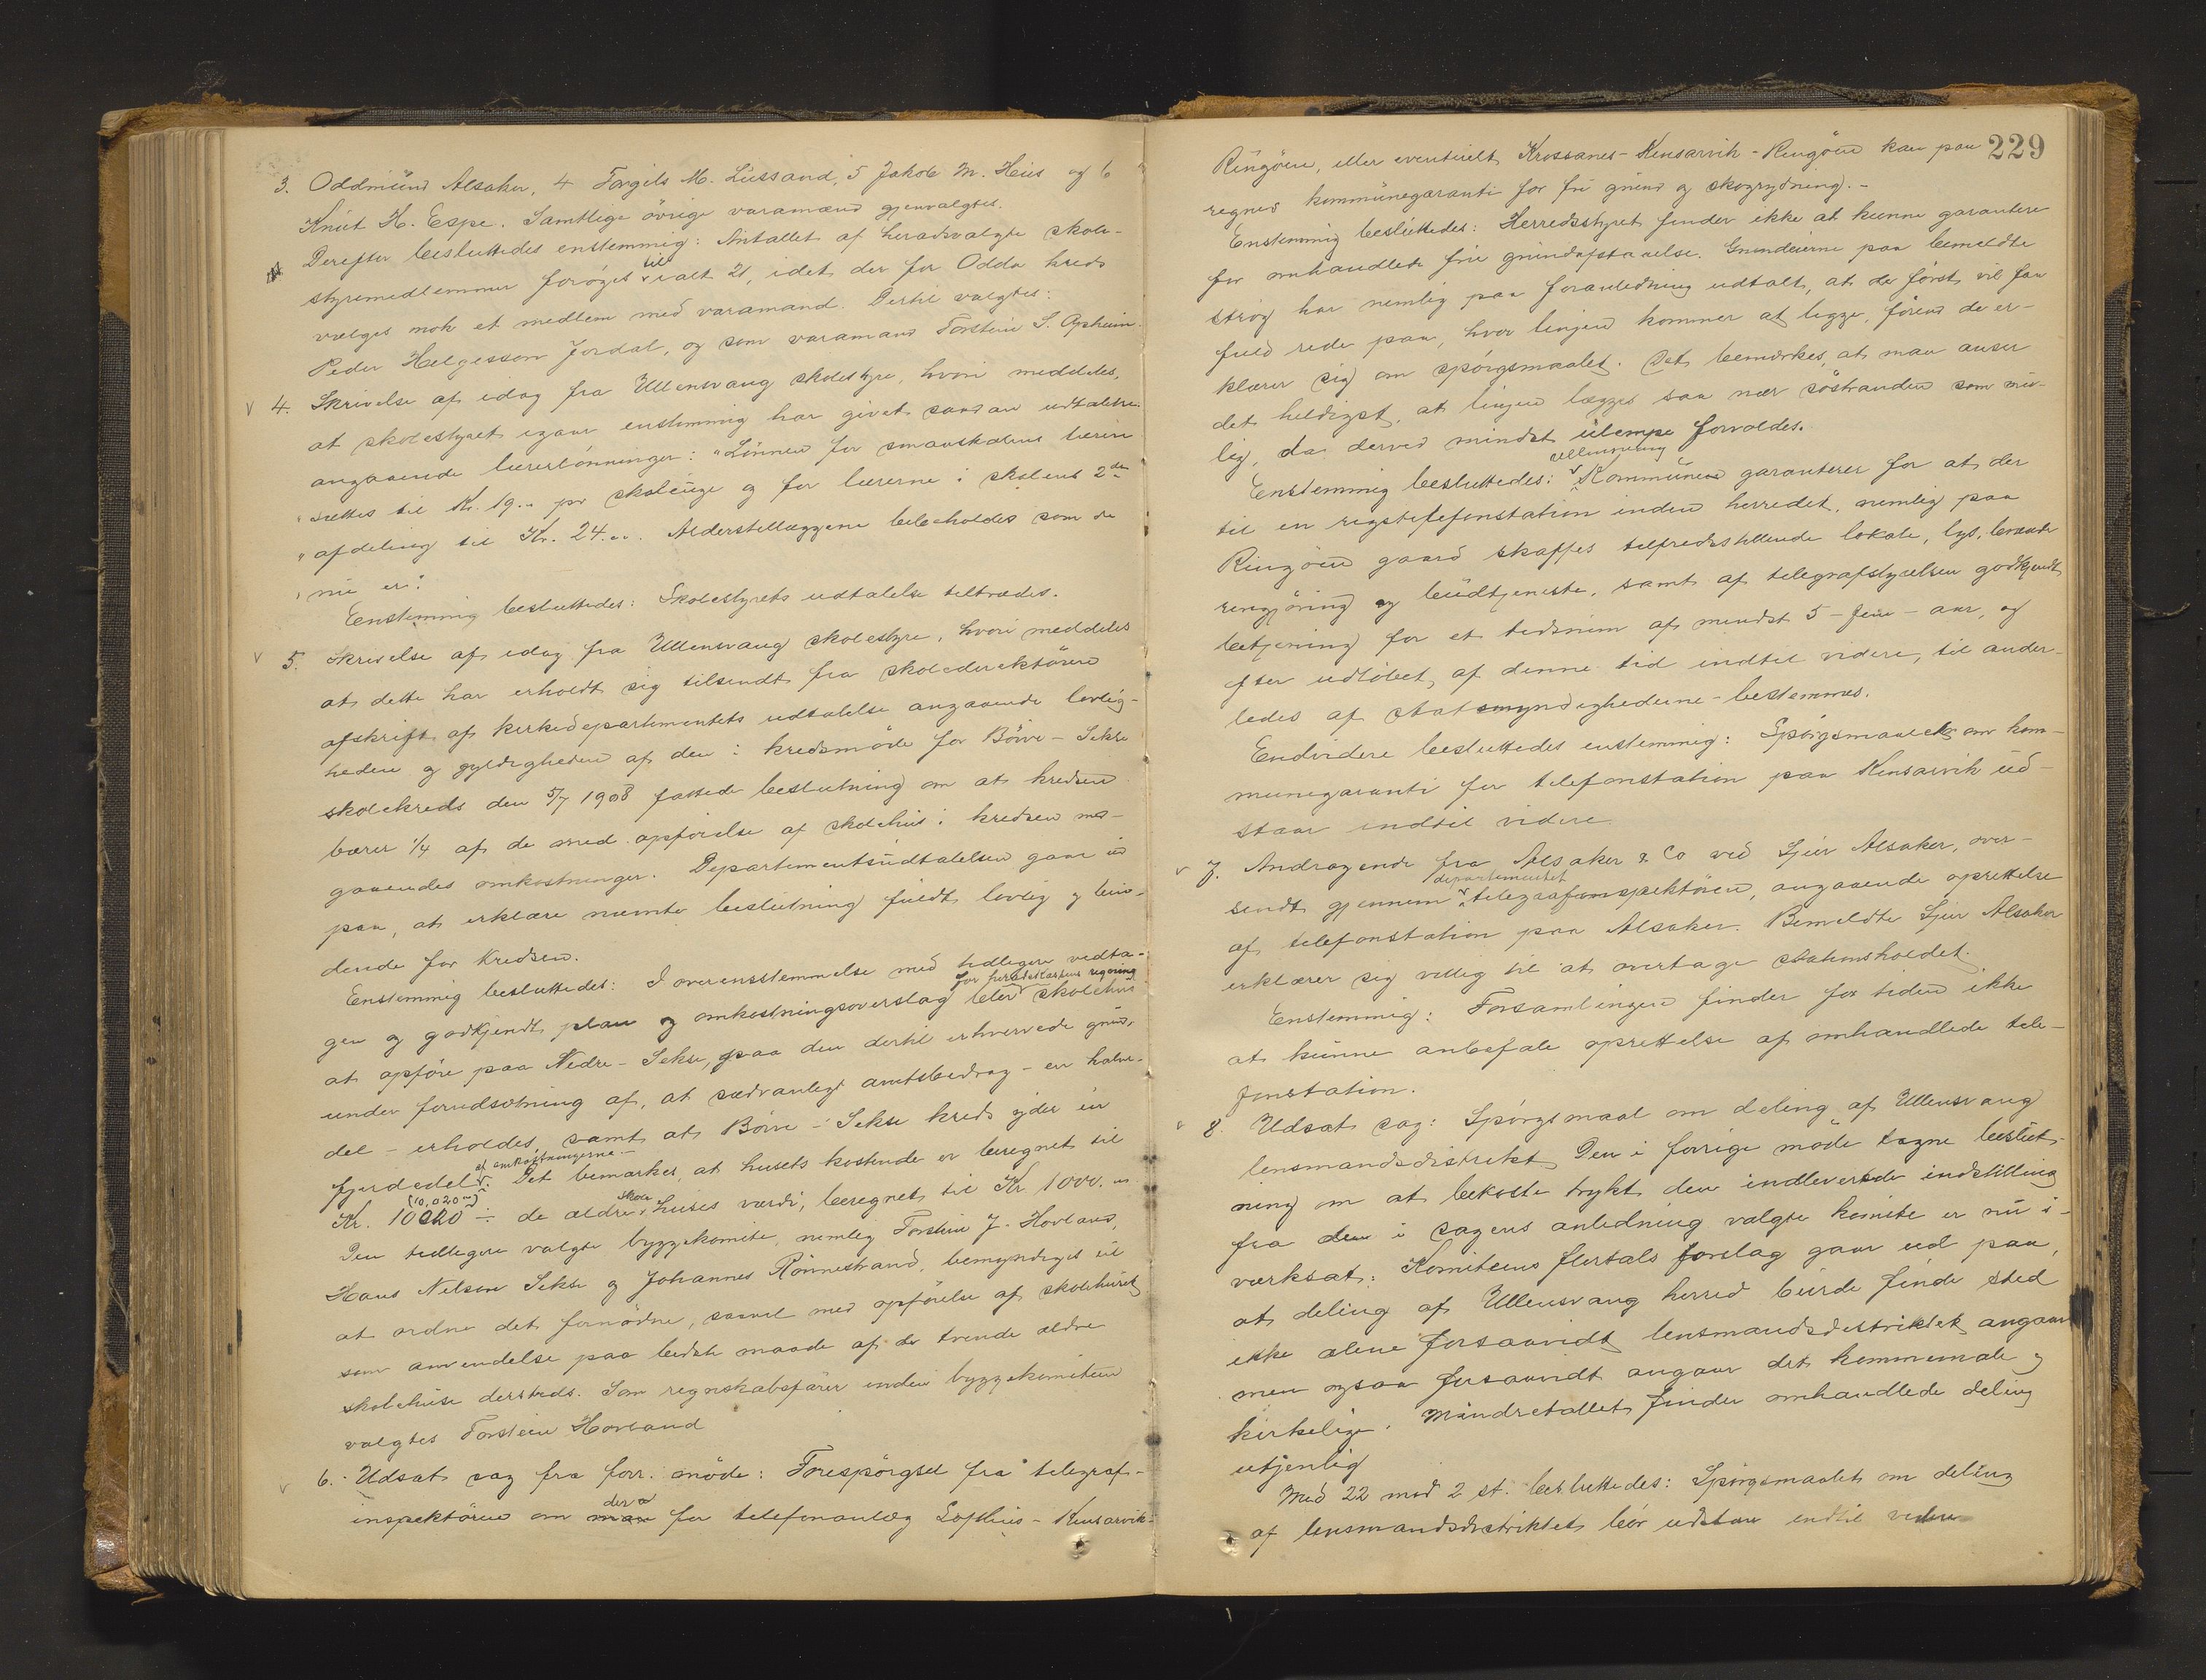 3. Oddmund Alsaker, 4 Torgils M. Lussand, 5 Jakob M. Heus og 6
Knut H. Espe. Samtlige øvrige varamænd gjenvalgtes.
Derefter besluttedes enstemmig: Antallet af heradsvalgte skole-
styremedlemmer forøges til ialt 21, idet der for Odda kreds
vælges nok et medlem med varamand. Dertil valgtes:
Peder Helgesson Jordal, og som varamand Torstein S. Apheim.
4. Skrivelse af idag fra Ullensvang skolestyre, hvori meddeles,
at skolestyret igaar enstemmig har givet saadan udtalelse
angaaende lærerlønninger: "Lønnen for smaaskolens lærere
"sættes til Kr. 19.. pr skoleuge og for lærerne i skolens 2den
"afdeling til Kr. 24... Alderstillæggene bibeholdes som de
"nu er".
Enstemmig besluttedes: Skolestyrets udtalelse tiltrædes.
5. Skrivelse af idag fra Ullensvang skolestyre, hvori meddeles
at dette har erholdt sig tilsendt fra skoledirektøren
afskrift af kirkedepartementets udtalelse angaaende lovlig-
heden og gyldigheden af den i kredsmøde for Børve - Sekse
skolekreds den 5/7 1908 fattede beslutning om at kredsen
bærer 1/4 af de med opførelse af skolehus i kredsen med-
gaaendes omkostninger. Departementsudtalelsen gaar ud
paa, at erklære nævnte beslutning fuldt lovlig og bin-
dende for kredsen.
Enstemmig besluttedes: I overensstemmelse med tidligere vedta-
gen og godkjendt plan og omkostningsoverslag blir for heradskassens regning skolehus
at opføre paa Nedre - Sekse, paa den dertil erhvervede grund,
under forudsætning af, at sædvanligt amtsbidrag - en halv-
del - erholdes, samt at Børve - Sekse kreds yder en
fjerdedel af omkostningerne. - Det bemærkes, at husets kostende er beregnet til
Kr. 10020 (10,020..) ÷ de ældre skolehuses værdi, beregnet til Kr 1000...
Den tidligere valgte byggekomite, nemlig Torstein J. Hovland,
Hans Nelson Sekse og Johannes Rønnestrand, bemyndiges til
at ordne det fornødne, saavel med opførelse af skolehuset
som anvendelse paa bedste maade af de tvende ældre
skolehuse dersteds. Som regnskabsfører inden byggekomiteen
valgtes Torstein Hovland
6. Udsat sag fra forr. møde: Forespørgsel fra telegraf-
inspektøren om man der for telefonanlæg Lofthus - Kinsarvik-
229
Ringøen, eller eventuelt Krossanes - Kinsarvik - Ringøen kan paa
regnes kommunegaranti for fri grund og skogrydning. -
Enstemmig besluttedes: Herredsstyret finder ikke at kunne garantere
for omhandlede frie grundafstaaelse. Grundeierne paa bemeldte
strøg har nemlig paa foranledning udtalt, at de først vil faa
fuld rede paa, hvor linjen kommer at ligge, førend de er-
klærer sig om spørgsmaalet. Det bemærkes, at man anser
det heldigst, at linjen lægges saa nær søstranden som mu-
lig, da derved mindst ulempe forvoldes.
Enstemmig besluttedes: Ullensvang Kommunen garanterer for at der
til en rigstelefonstation inden herredet, nemlig paa
Ringøen gaard skaffes tilfredsstillende lokale, lys, brænde
rengjøring og budtjeneste, samt af telegrafstyrelsen godkjendt
betjening for et tidsrum af mindst 5 - fem - aar, og
efter udløbet af denne tid indtil videre, til ander-
ledes af statsmyndighederne - bestemmes.
Endvidere besluttedes enstemmig: Spørgsmaalet om kom-
munegaranti for telefonstation paa Kinsarvik ud-
staar indtil videre
7. Andragende fra Alsaker & Co ved Sjur Alsaker, over-
sendt gjennem departementet telegrafinspektøren, angaaende oprettelse
af telefonstation paa Alsaker. Bemeldte Sjur Alsaker
erklærer sig villig til at overtage stationsholdet.
Enstemmig: Forsamlingen finder for tiden ikke
at kunne anbefale oprettelse af omhandlede tele-
fonstation.
8. Udsat sag: Spørgsmaal om deling af Ullensvang
lensmandsdistrikt. Den i forrige møde tagne beslut-
ning om at bekoste trykt den indleverede indstilling
fra den i sagens anledning valgte komite er nu i-
værksat: Komiteens flertals forslag gaar ud paa,
at deling af Ullensvang herred burde finde sted
ikke alene forsaavidt lensmandsdistriktet angaar
men ogsaa forsaavidt angaar det kommunale og
kirkelige. Mindretallet finder omhandlede deling
utjenlig
Med 22 mod 2 st. besluttedes: Spørgsmaalet om deling
af lensmandsdistriktet bør udstaa indtil videre